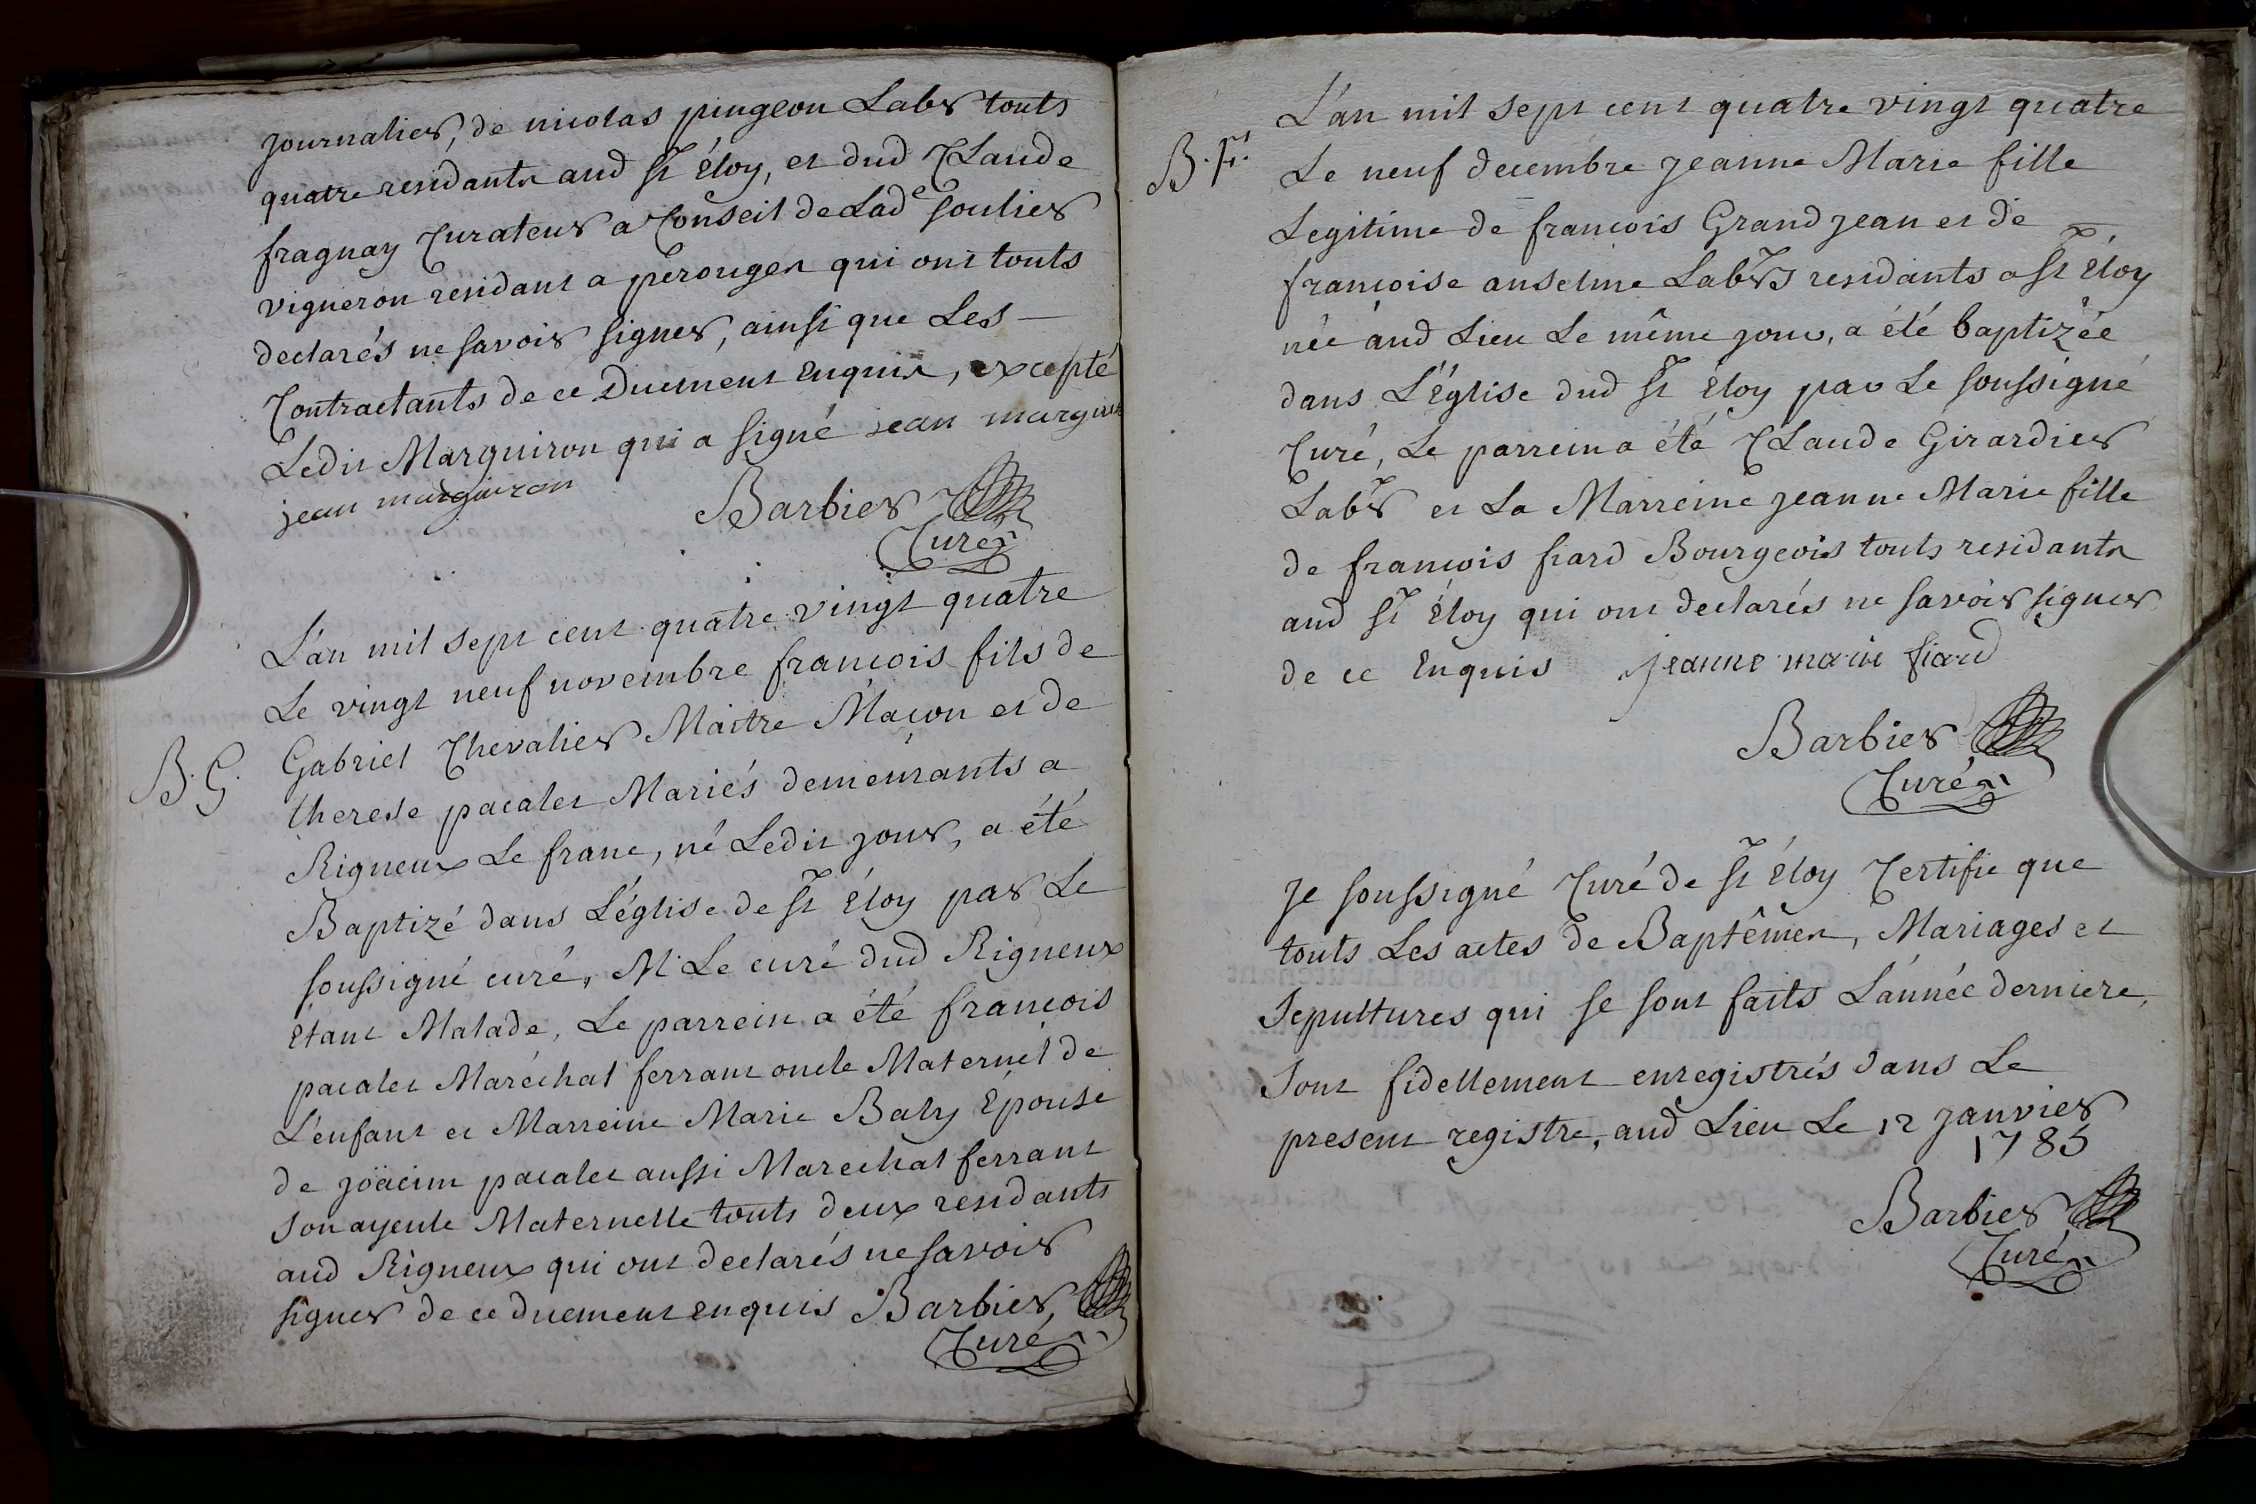 journalier, de nicolas pingeon Labr touts
quatre residants aud st Éloy, et dud Claude
fragnay Curateur a Conseil de Lade soulier
vigneron residant a perouges qui ont touts
declarés ne savoir signer, ainsi que Les —
Contractants de ce Duement Enquis, excepté
Ledit Marguiron qui a signé jean marguiron
jean marguiron
Barbier
Curé
L'an mil sept cent quatre vingt quatre
Le vingt neuf novembre francois fils de
B. G. Gabriel Chevalier Maitre Maçon et de
therese pacalet Mariés demeurants a
Rigneux Le franc, né Ledit jour, a été
Baptizé dans L'église de st Éloy par Le
soussigné curé, Mr Le curé dud Rigneux
Étant Malade, Le parrein a été francois
pacalet Maréchal ferrant oncle Maternel de
L'enfant et Marreine Marie Baly Épouse
de joäcim pacalet aussi Marechal ferrant
son ayeule Maternelle touts deux residants
aud Rigneux qui ont declarés ne savoir
signer de ce duement enquis Barbier,
Curé
L'an mil sept cent quatre vingt quatre
B. F. Le neuf decembre jeanne Marie fille
Legitime de francois Grandjean et de
francoise anselme Labrs residants a st Éloy
née aud Lieu Le même jour, a été baptizée
dans L'Église dud st Éloy par Le soussigné
Curé, Le parrein a été Claude Girardier
Labr et La Marreine jeanne Marie fille
de francois fiard Bourgeois touts residants
aud st Éloy qui ont declarés ne savoir signer
de ce Enquis jeanne marie fiard
Barbier
Curé
Je soussigné Curé de st Éloy Certifie que
touts Les actes de Baptêmes, Mariages et
Sepultures qui se sont faits L'année derniere,
Sont fidellement enregistrés dans Le
present registre, aud Lieu Le 12 janvier
1785
Barbier
Curé